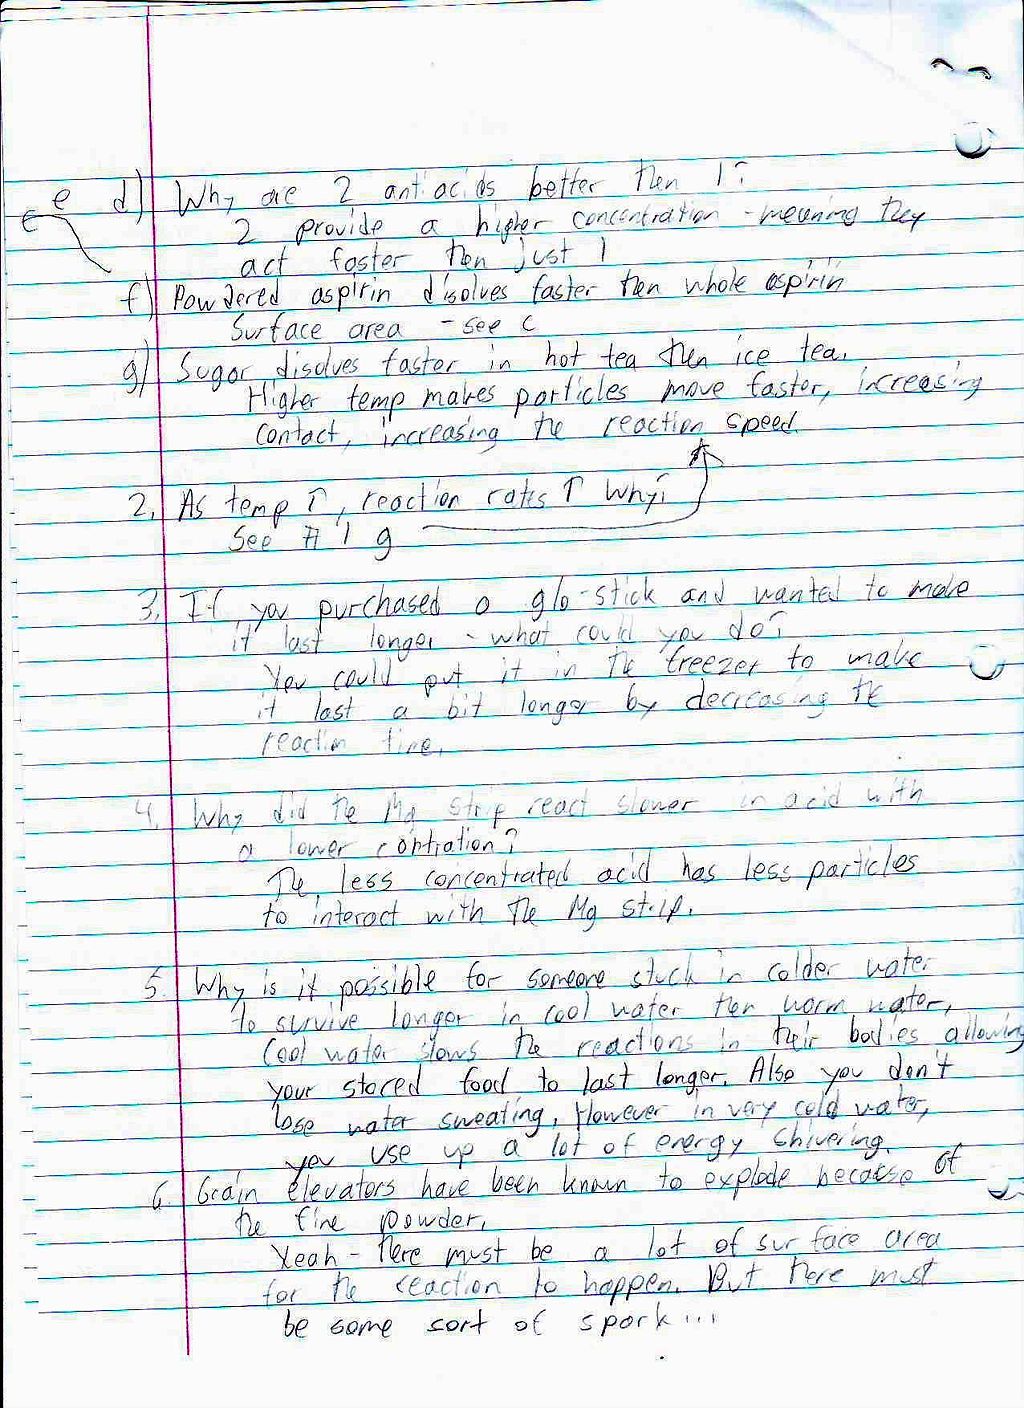 e e d) Why are 2 antiacids better then 1?
2 provide a higher concentration - meaning they
act faster then just 1
f) Powdered aspirin disolves faster then whole aspirin
Surface area - see c
g) Sugar disolves faster in hot tea then ice tea.
Higher temp makes particles move faster, increasing
contact, increasing the reaction speed.
2. As temp ↑, reaction rates ↑ Why?
See # 1 g
3. If you purchased a glo-stick and wanted to make
it last longer - what could you do?
You could put it in the freezer to make
it last a bit longer by decreasing the
reaction time.
4. Why did the Mg strip react slower in acid with
a lower contration?
The less concentrated acid has less particles
to interact with the Mg strip.
5. Why is it possible for someone stuck in colder water
to survive longer in cool water then warm water,
Cool water slows the reactions in their bodies allowing
your stored food to last longer. Also you don't
lose water sweating. However in very cold water,
you use up a lot of energy shivering.
6. Grain elevators have been known to explode because of
the fine powder.
Yeah - there must be a lot of surface area
for the reaction to happen. But there must
be some sort of spark...